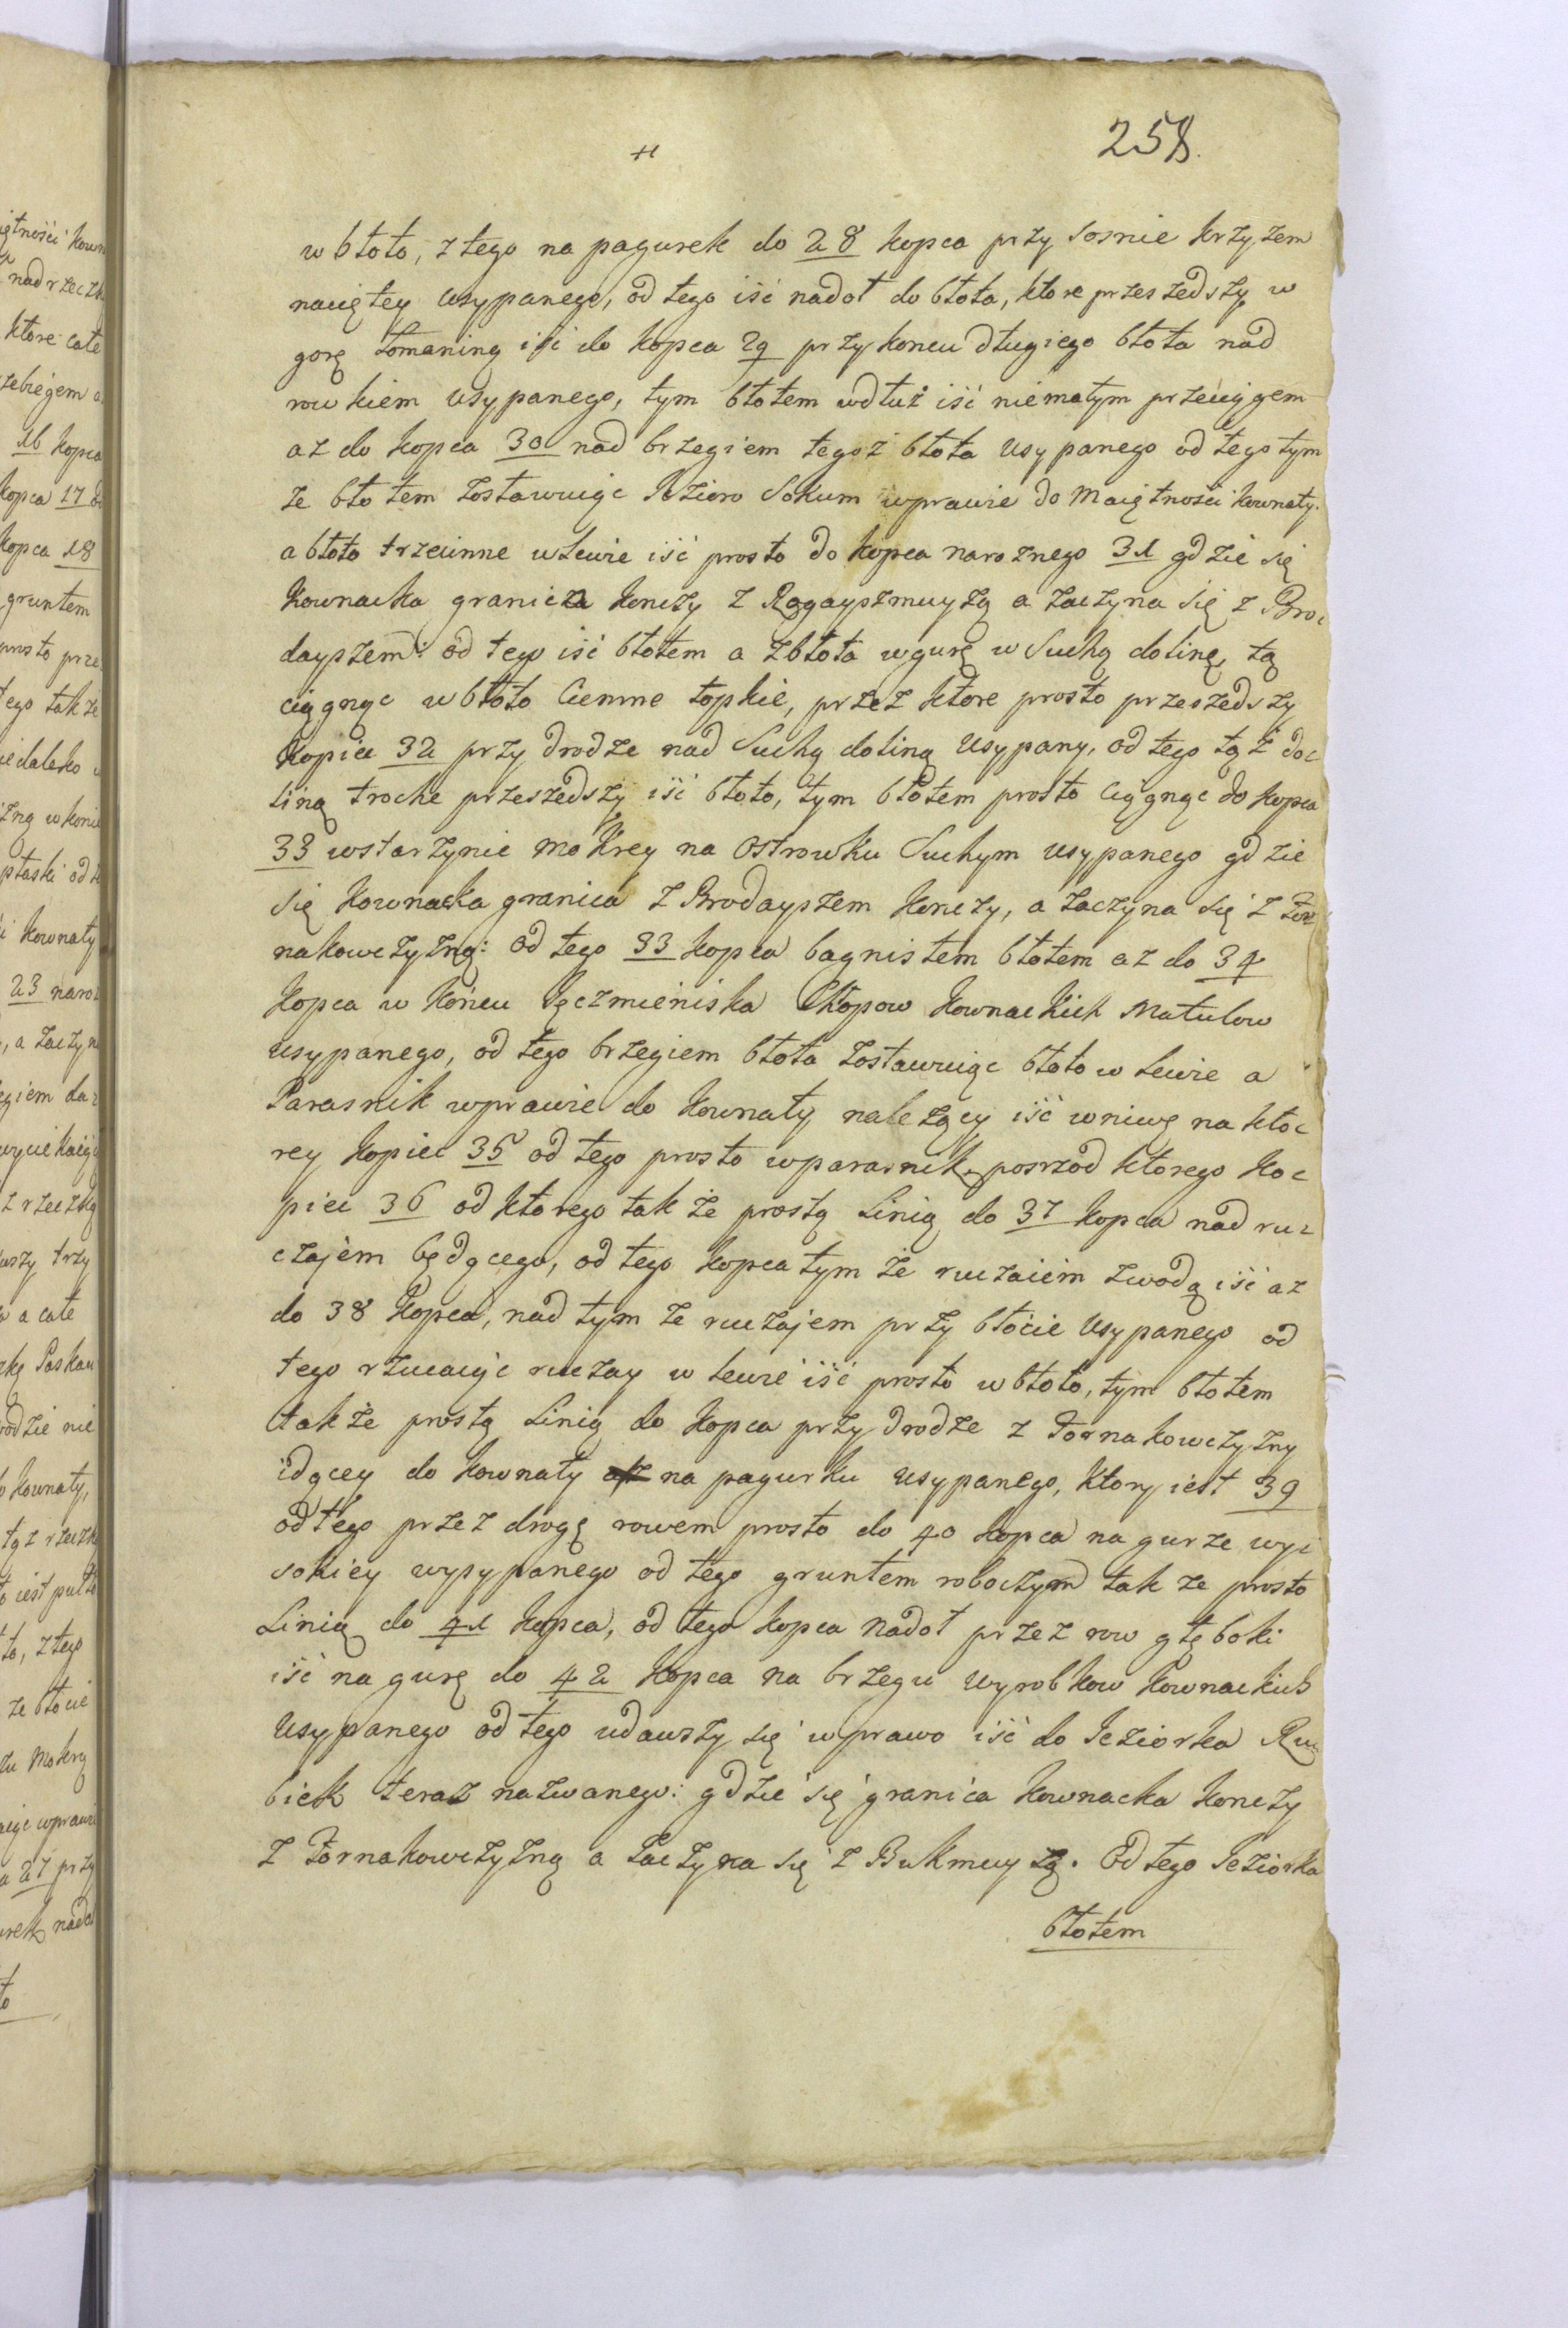 258.
w błoto, z tego na pagurek do 28 kopca przy sosnie krzyżem
naciętey usypanego, od tego iść nadoł do błota, ktore przeszedszy w
gorę Łomaniną iść do kopca 29 przy koncu długiego błota nad
rowkiem usypanego, tym błotem wdłuż iść niemałym przeciągem
az do kopca 30 nad brzegiem tegoż błota usypanego od tego tym
że błotem zostawuiąc Jezioro Sokum wprawie do Maiętnosci Kownaty.
a błoto trzcinne wlewie iść prosto do kopca narożnego 31 gdzie się
Kownacka granica konczy z Rogayszmuyżą a zaczyna się z Bro-
dayszem: od tego iść błotem a z błota wgurę w Suchą dolinę, tą
ciągnąc w błoto Ciemne topkie, przez ktore prosto przeszedszy
kopiec 32 przy drodze nad Suchą doliną usypany, od tego tąż do-
liną troche przeszedszy iść błoto, tym błotem prosto ciągnąc do kopca
33 wstarzynie mokrey na Ostrowku Suchym usypanego gdzie
się Kownacka granica z Brodayszem konczy, a zaczyna się z For
nakowczyzną: od tego 33 kopca bagnistem błotem az do 34
kopca w końcu Jęczmieniska Chłopow Kownackich Matulow
usypanego, od tego brzegiem błota zostawuiąc błoto w lewie a
Parasnik wprawie do Kownaty należący iść w niwę na kto-
rey kopiec 35 od tego prosto w parasnik, posrzod ktorego ko-
piec 36 od ktorego tak że prostą Linią do 37 kopca nad ru-
czajem będącego, od tego kopca tym że ruczaiem z wodą iść az
do 38 kopca, nad tym że ruczajem przy błocie usypanego od
tego rzucaiąc ruczay w lewie iść prosto w błoto, tym błotem
także prostą Linią do kopca przy drodze z Fornakowczyzny
idącey do Kownaty na pagurku usypanego, ktory iest 39
od tego przez drogę rowem prosto do 40 kopca na gurze wy-
sokiey wysypanego od tego gruntem roboczym tak że prosto
Linią do 41 kopca, od tego kopca nadoł przez row głęboki
iść na gurę do 42 kopca na brzegu wyrobkow Kownackich
usypanego od tego udawszy się w prawo iść do Jeziorka Ru-
bick teraz nazwanego: gdzie się granica Kownacka konczy
z Fornakowczyzną a zaczyna się z Bukmuyżą. Od tego Jeziorka
błotem